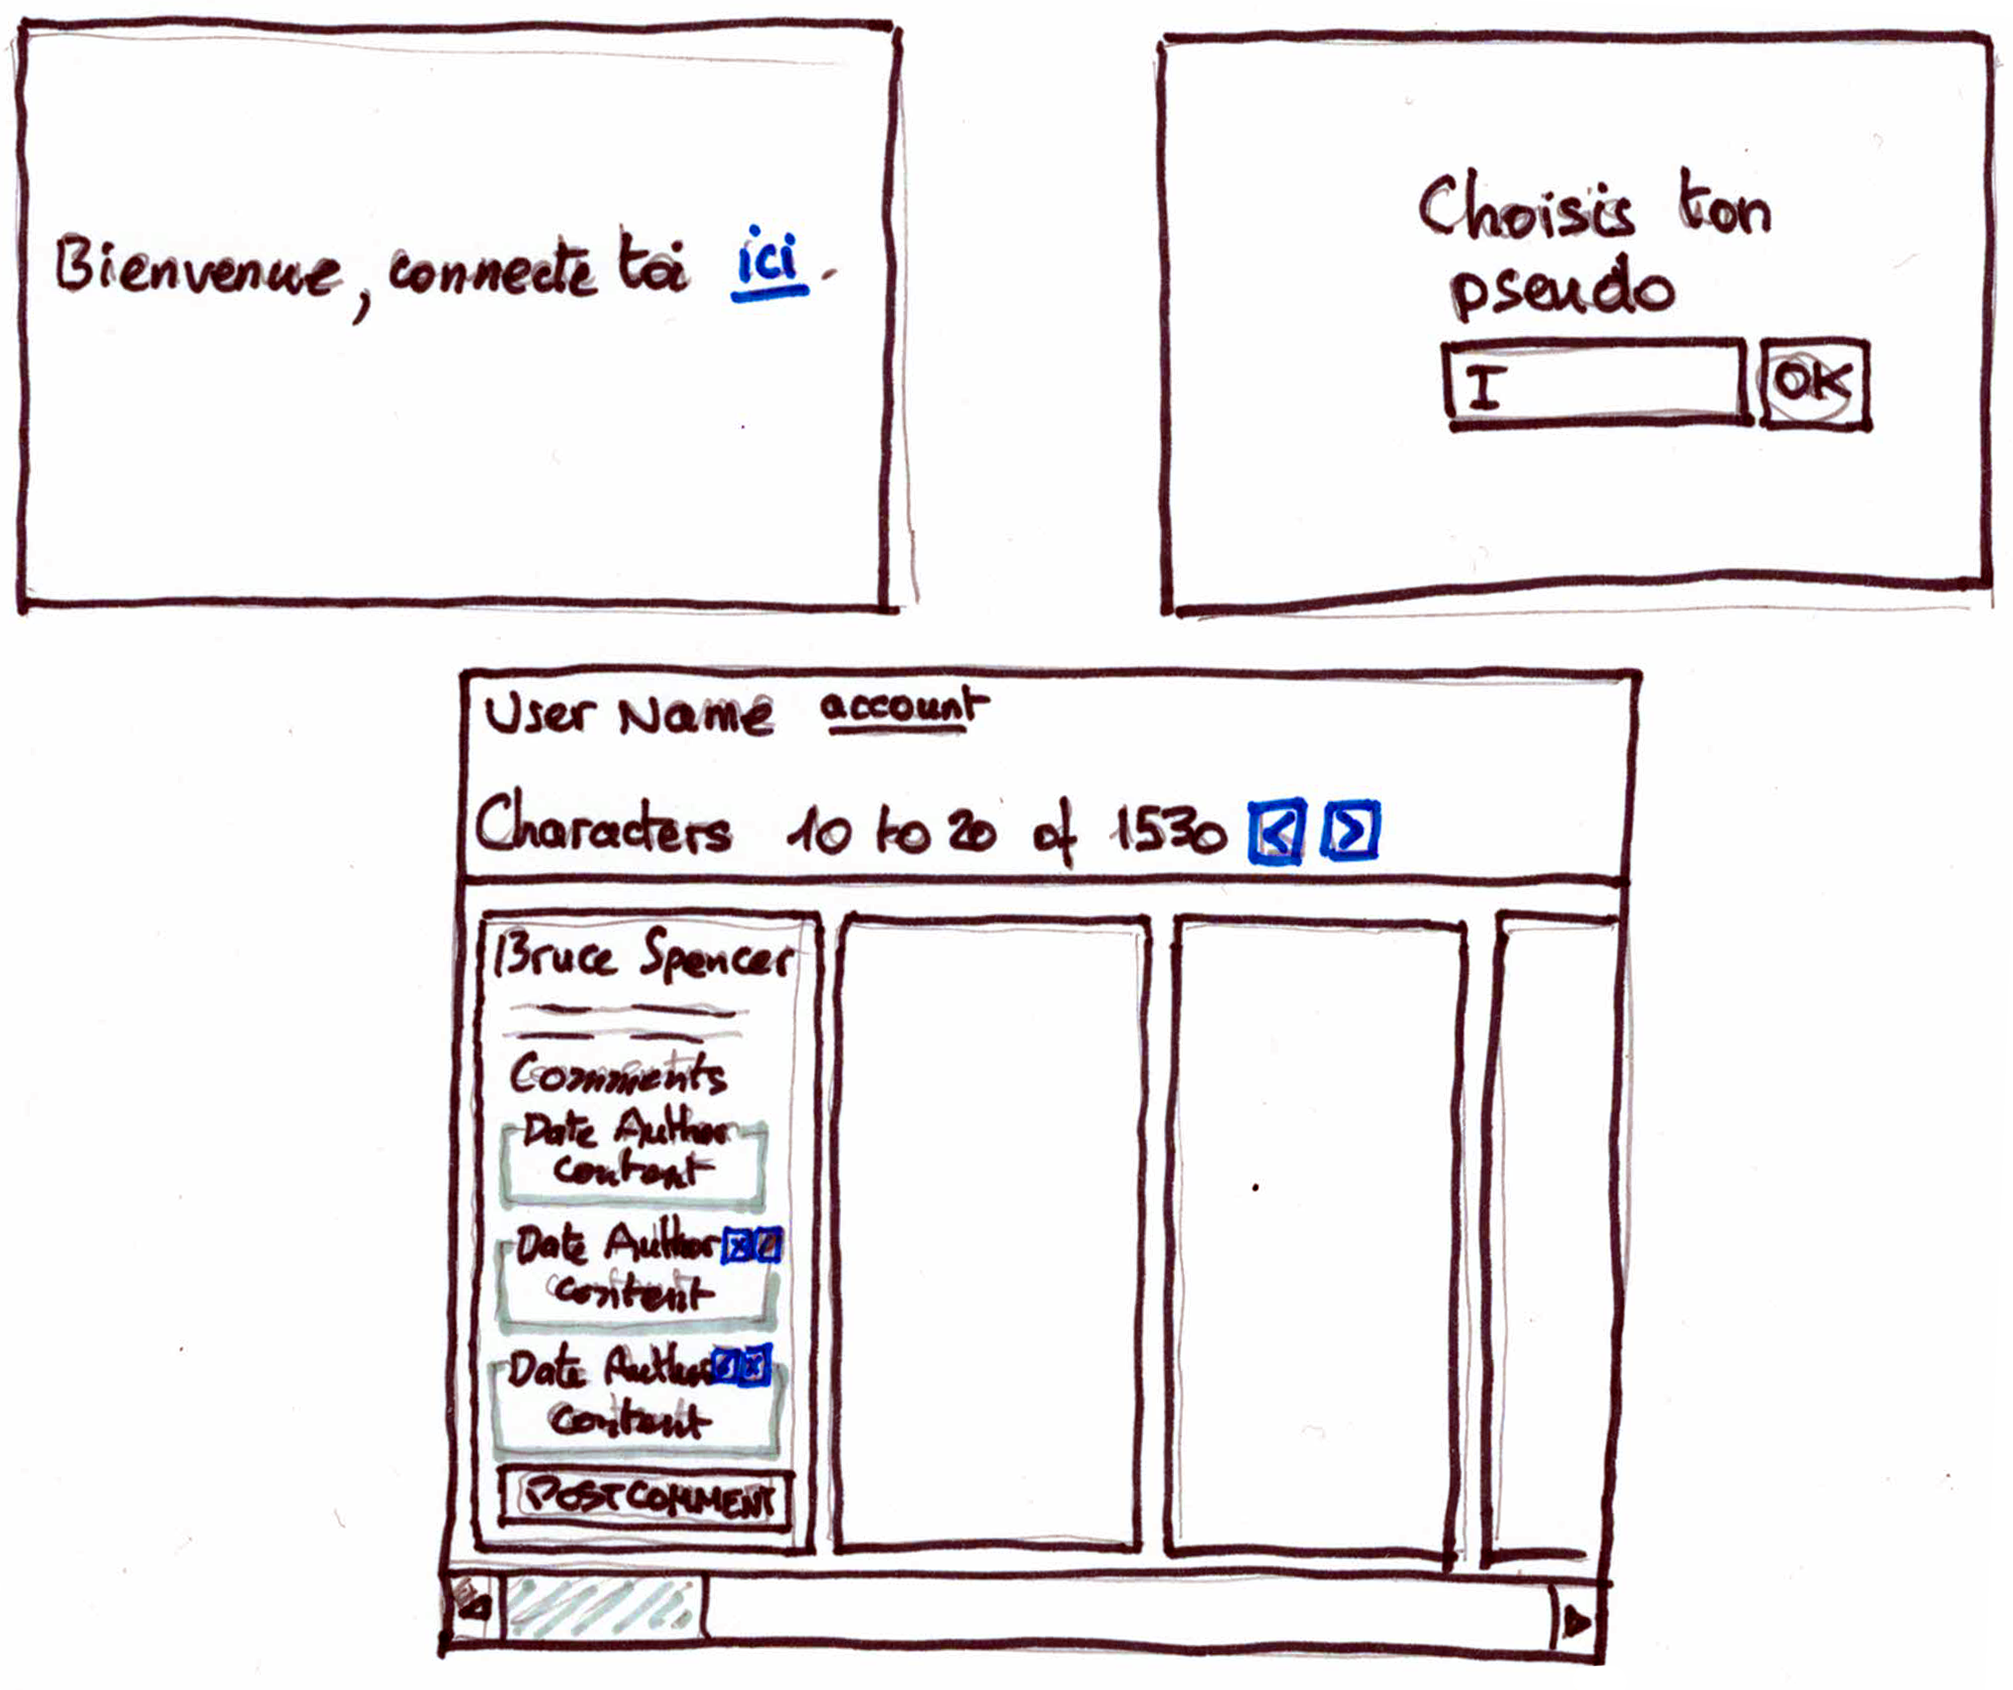 Bienvenue, connecte toi ici.
Choisis ton
pseudo
I
OK
User Name account
Characters 10 to 20 of 1530 < >
Bruce Spencer
Comments
Date Author
Content
Date Author x
Content
Date Author x
Content
POST COMMENT